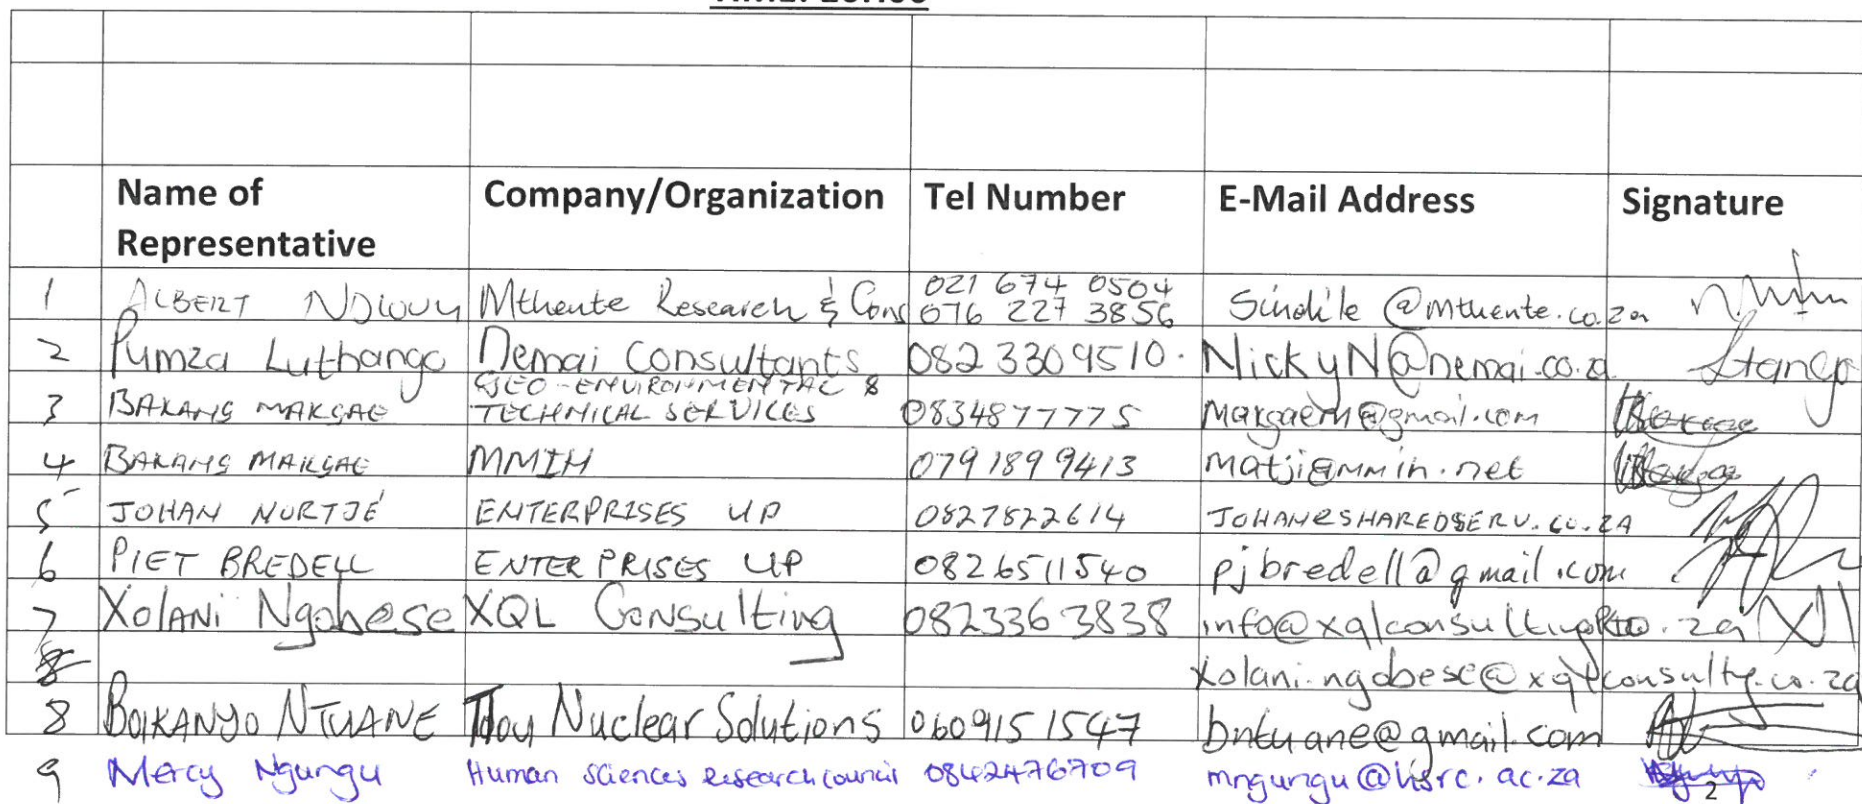 Name of Representative Company/Organization Tel Number E-Mail Address Signature
1 ALBERT Mthente Research & Cons 021 674 0504
076 227 3856 Sindile @mthente.co.za
2 Pumza Luthango Nemai Consultants 082 3309510. NickyN@nemai.co.za
3 BAKANG MAKGAE GEO-ENVIRONMENTAL &
TECHNICAL SERVICES 0834877775 Makgaem@gmail.com
4 BAKANG MAKGAE MMIH 0791899413 matji@mmih.net
5 JOHAN NORTJÉ ENTERPRISES UP 0827822614 JOHAN@SHAREDSERV.CO.ZA
6 PIET BREDELL ENTERPRISES UP 0826511540 pjbredell@gmail.com
7 Xolani Ngobese XQL Consulting 0823363838
8 xolani.ngobese@xqlconsulting.co.za
8 BOIKANYO NTUANE Nuclear Solutions 0609151547 bntuane@gmail.com
9 Mercy Ngungu Human Sciences Research Council 0842476709 mngungu@hsrc.ac.za
2